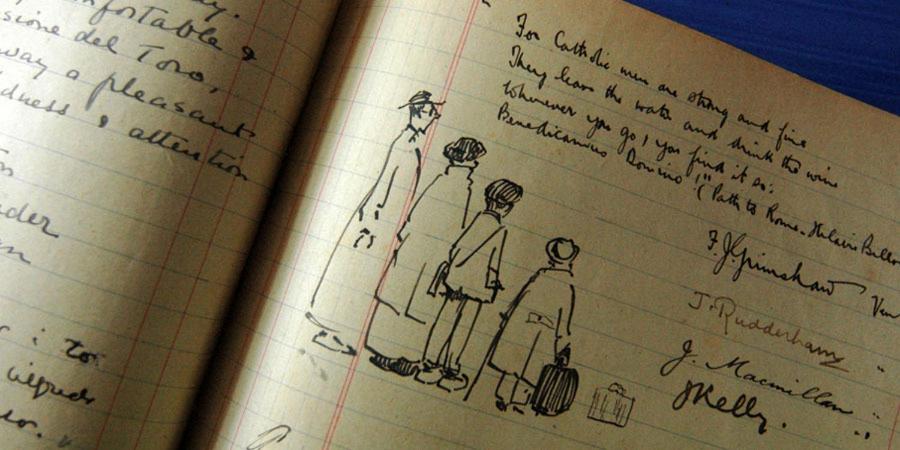 ay.
nfortable &
sione del Toro,
way a pleasant
dness & attention
ider
: to
For Catholic men are strong and fine
They leave the water and drink the wine
Wherever you go, you find it so:
Benedicamus Domino!" (Path to Rome. Hilaire Bello
F. J. Grimshaw Ven
J. Rudderham "
J. Macmillan "
JKelly. "